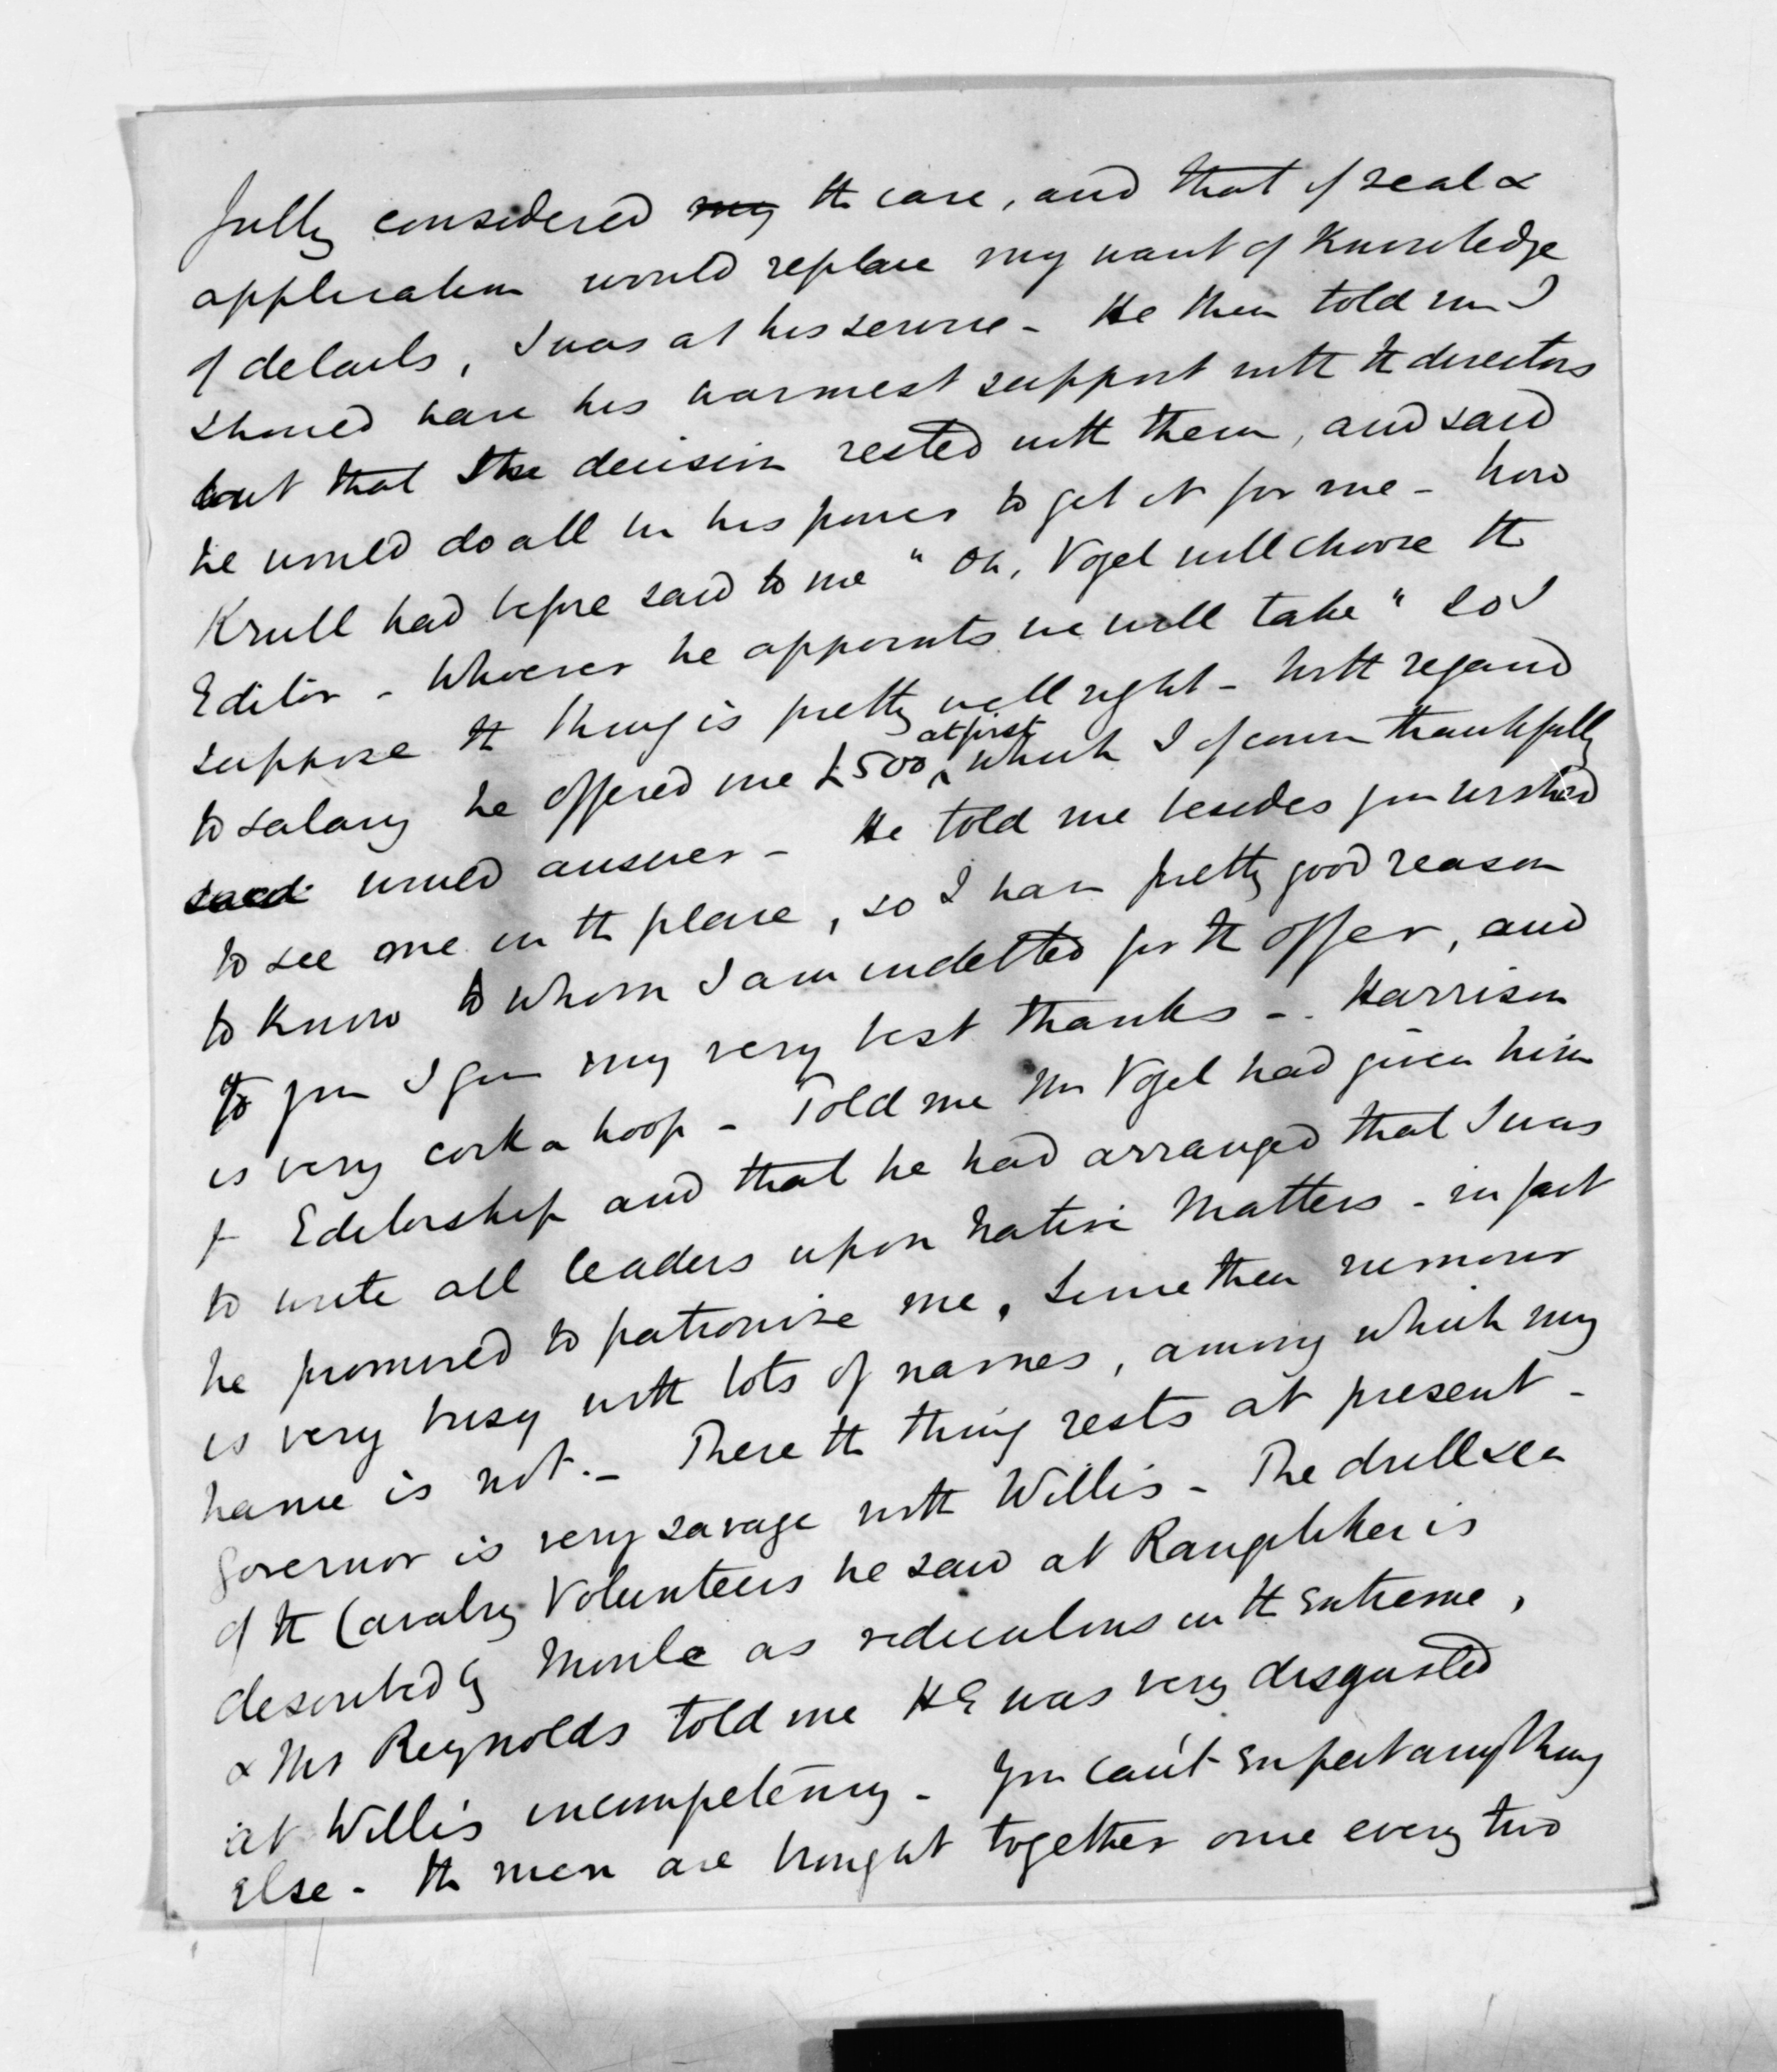 fully considered my the case, and that if zeal &
application would replace my want of Knowledge
of details, I was at his service - He then told me I
should have his warmest support with the directors
but that the decision rested with them, and said
he would do all in his power to get it for me - now
Krull had before said to me " Oh, Vogel will choose the
Editor - Whoever he appoints we will take " So I
suppose the thing is pretty well right - With regard
to salary he offered me £500 at first which I of course thankfully
said would answer - He told me besides you wished
to see me in the place, so I have pretty good reason
to know to whom I am indebted for the offer, and
to you I give my very best thanks - . Harrison
is very cock a hoop - Told me Mr Vogel had given him
Editorship and that he had arranged that I was
to write all leaders upon Native Matters - in fact
he promised to patronise me. Since then rumour
is very busy with lots of names, among which my
name is not. - There the thing rests at present -
Governor is very savage with Willis - The drill seen
of the Cavalry Volunteers he saw at Rangitikei is
described by Moule as rediculous in the extreme,
& Mr Reynolds told me HE was very disgusted
at Willis incompetency - You can't expect anything
else - the men are brought together once every two